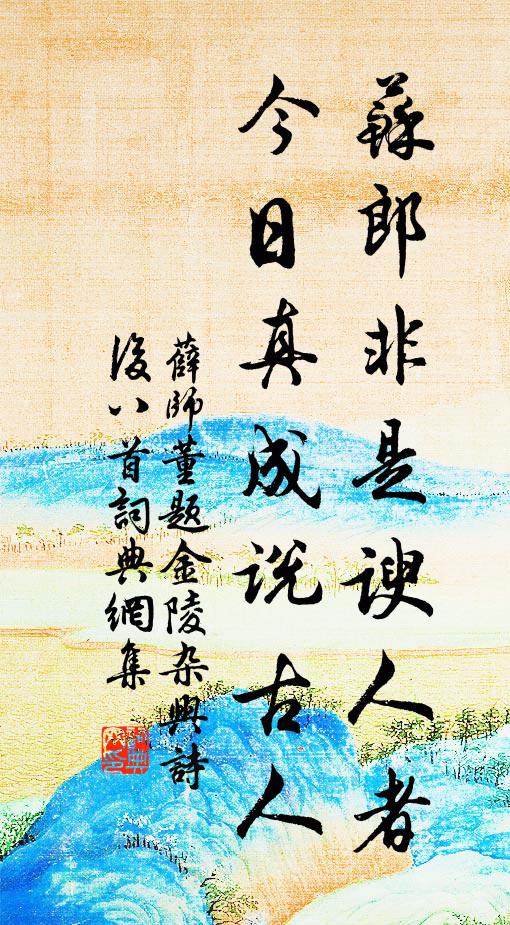 蘇郎非是謏人者
今日真成説古人
薛師董題金陵杂興詩
後八首詞典網集